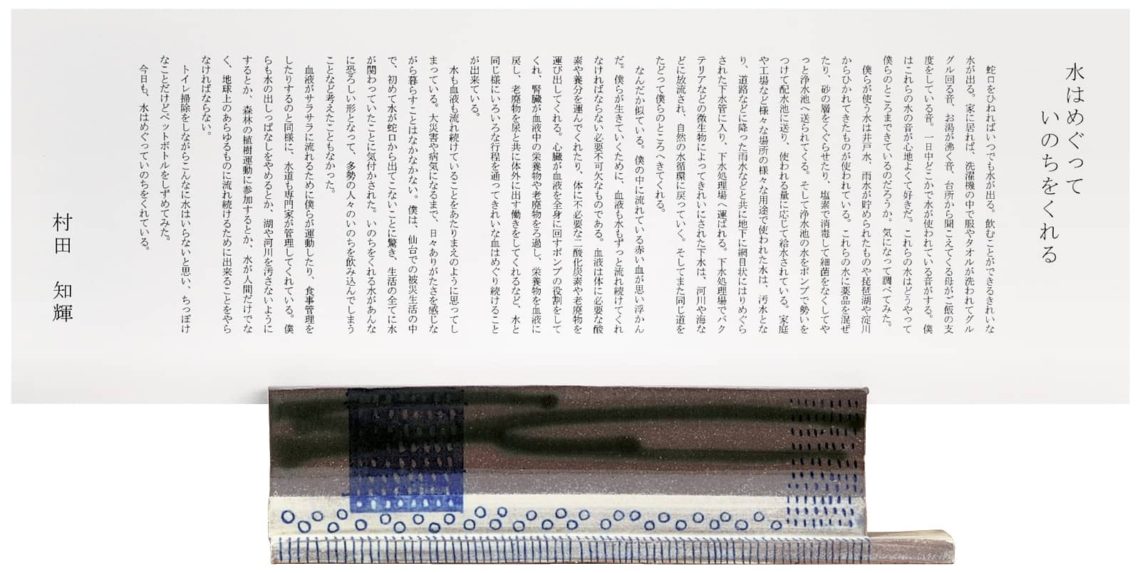 水はめぐって
いのちをくれる
蛇口をひねればいつでも水が出る。飲むことができるきれいな
水が出る。家に居れば、洗濯機の中で服やタオルが洗われてグル
グル回る音、お湯が沸く音、台所から聞こえてくる母がご飯の支
度をしている音。一日中どこかで水が使われている音がする。僕
はこれらの水の音が心地よくて好きだ。これらの水はどうやって
僕らのところまできているのだろうか。気になって調べてみた。
僕らが使う水は井戸水、雨水が貯められたものや琵琶湖や淀川
からひかれてきたものが使われている。これらの水に薬品を混ぜ
たり、砂の層をくぐらせたり、塩素で消毒して細菌をなくしてや
っと浄水池へ送られてくる。そして浄水池の水をポンプで勢いを
つけて配水池に送り、使われる量に応じて給水されている。家庭
や工場など様々な場所の様々な用途で使われた水は、汚水とな
り、道路などに降った雨水などと共に地下に網目状にはりめぐら
された下水管に入り、下水処理場へ運ばれる。下水処理場でバク
テリアなどの微生物によってきれいにされた下水は、河川や海な
どに放流され、自然の水循環に戻っていく。そしてまた同じ道を
たどって僕らのところへきてくれる。
なんだか似ている。僕の中に流れている赤い血が思い浮かん
だ。僕らが生きていくために、血液も水もずっと流れ続けてくれ
なければならない必要不可欠なものである。血液は体に必要な酸
素や養分を運んでくれたり、体に不必要な二酸化炭素や老廃物を
運び出してくれる。心臓が血液を全身に回すポンプの役割をして
くれ、腎臓が血液中の栄養物や老廃物をろ過し、栄養物を血液に
戻し、老廃物を尿と共に体外に出す働きをしてくれるなど、水と
同じ様にいろいろな行程を通ってきれいな血はめぐり続けること
が出来ている。
水も血液も流れ続けていることをあたりまえのように思ってし
まっている。大災害や病気になるまで、日々ありがたさを感じな
がら暮らすことはなかなかない。僕は、仙台での被災生活の中
で、初めて水が蛇口から出てこないことに驚き、生活の全てに水
が関わっていたことに気付かされた。いのちをくれる水があんな
に恐ろしい形となって、多勢の人々のいのちを飲み込んでしまう
ことなど考えたこともなかった。
血液がサラサラに流れるために僕らが運動したり、食事管理を
したりするのと同様に、水道も専門家が管理してくれている。僕
らも水の出しっぱなしをやめるとか、湖や河川を汚さないように
するとか、森林の植樹運動に参加するとか、水が人間だけでな
く、地球上のあらゆるものに流れ続けるために出来ることをやら
なければならない。
トイレ掃除をしながらこんなに水はいらないと思い、ちっぽけ
なことだけどペットボトルをしずめてみた。
今日も、水はめぐっていのちをくれている。
村田　知輝